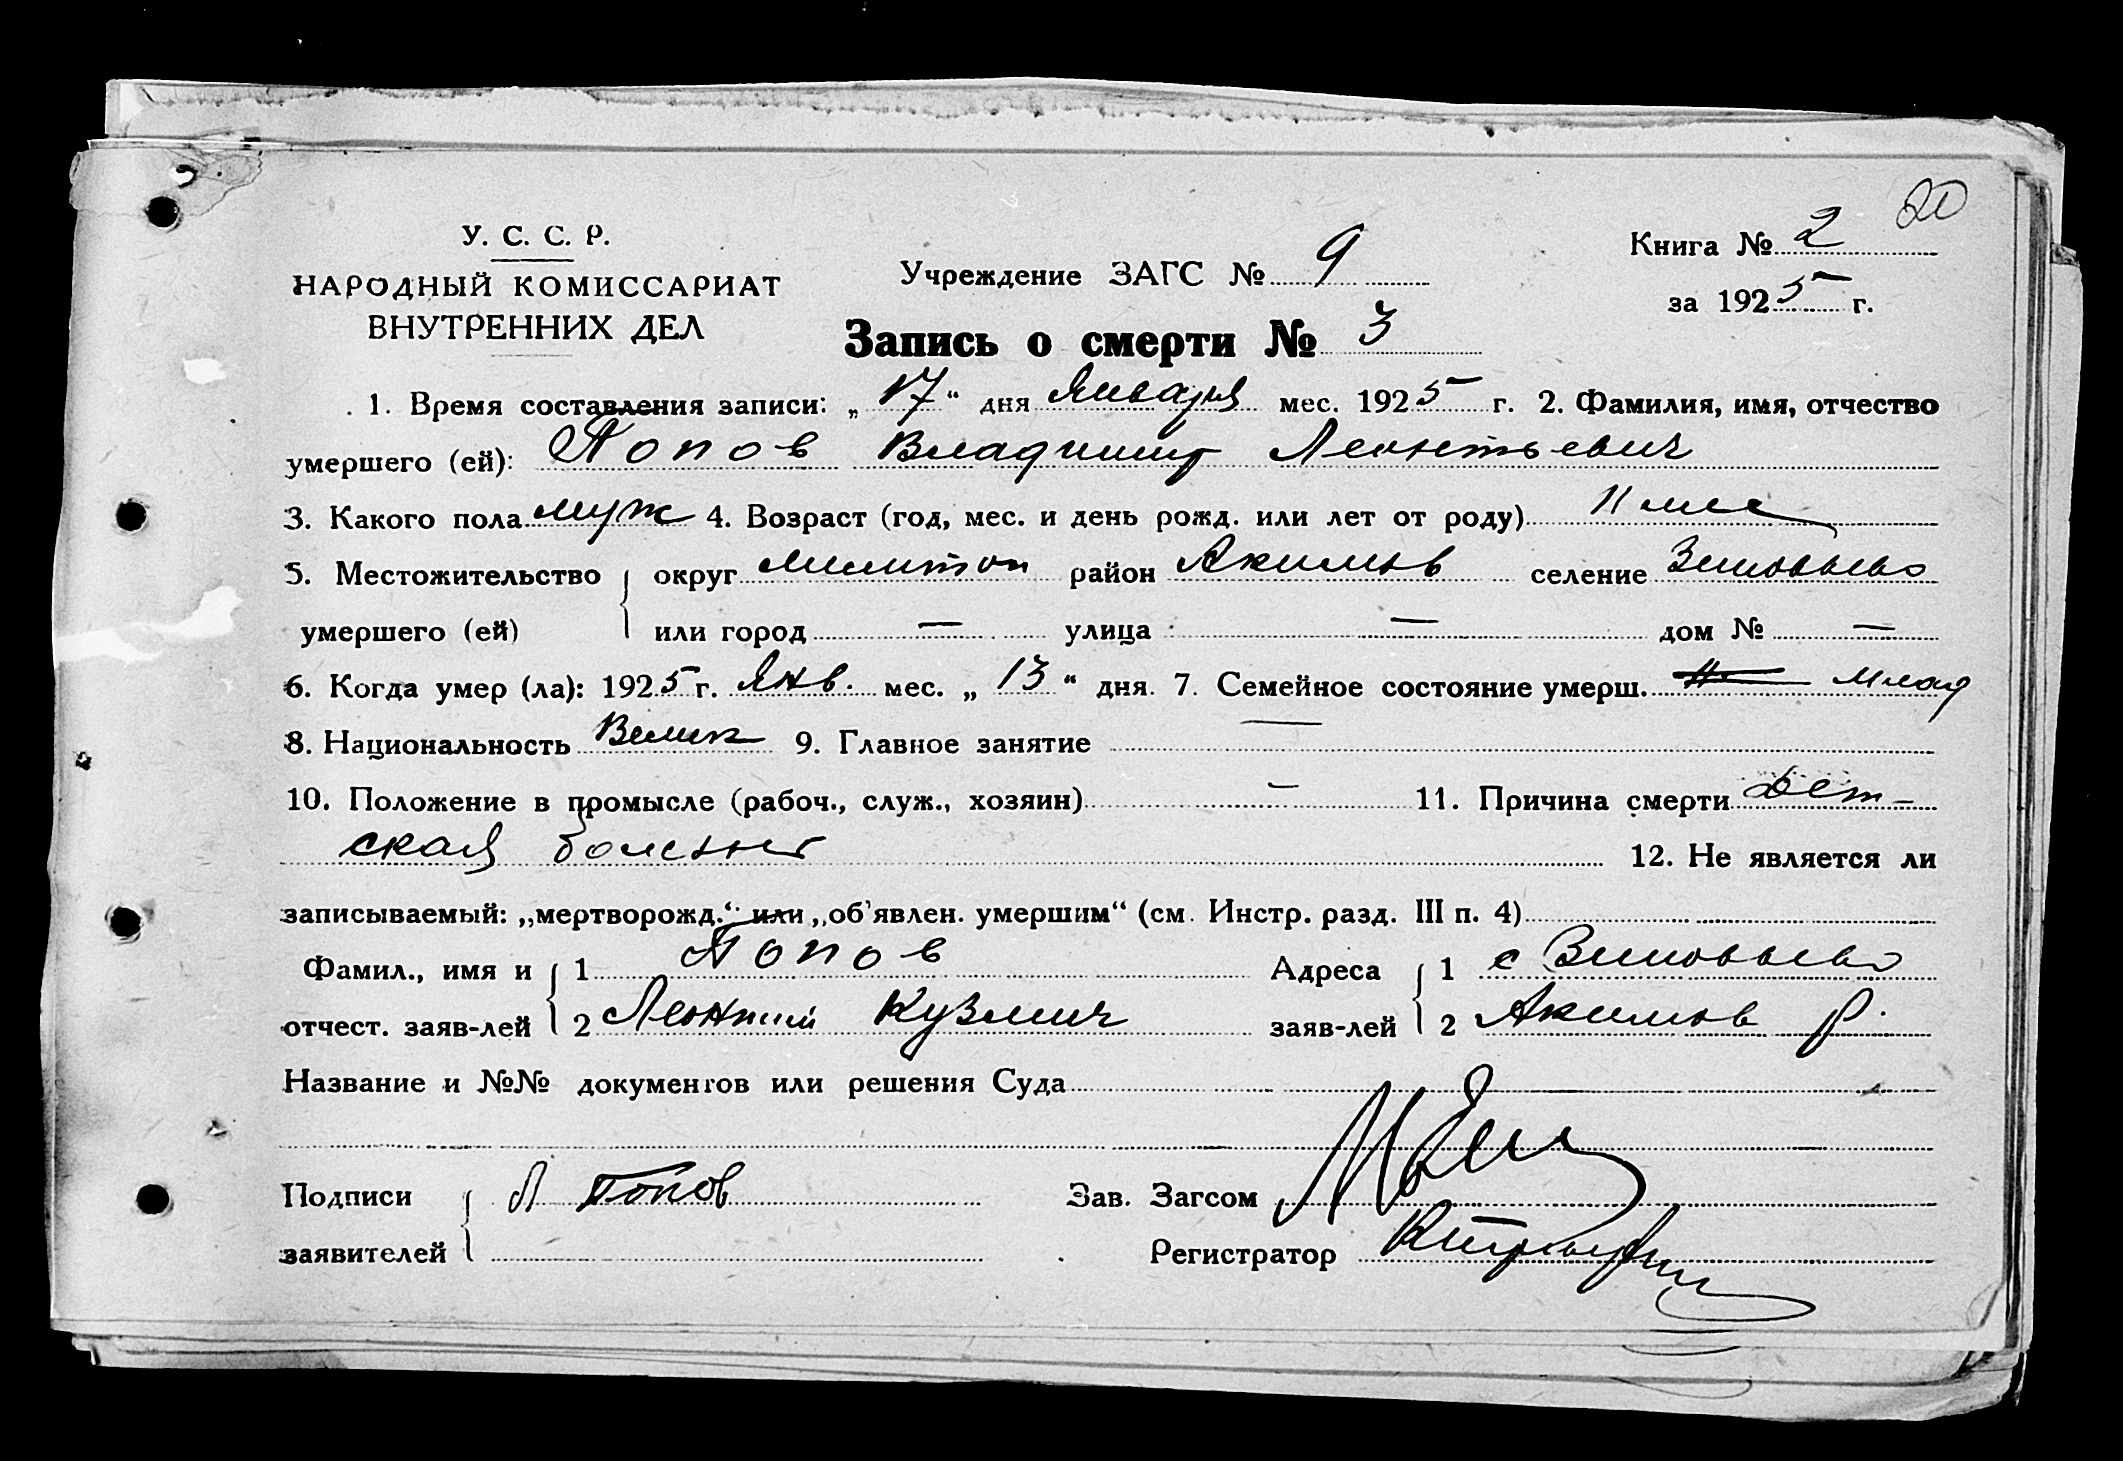 20
У. С. С. Р.
НАРОДНЫЙ КОМИССАРИАТ
ВНУТРЕННИХ ДЕЛ
Учреждение ЗАГС № 9
Книга № 2
за 1925 г.
Запись о смерти № 3
1. Время составления записи: „17“ дня Января мес. 1925 г. 2. Фамилия, имя, отчество
умершего (ей): Попов Владимир Леонтьевич
3. Какого пола муж 4. Возраст (год, мес. и день рожд. или лет от роду) 11 мес
5. Местожительство умершего (ей) округ Мелитоп район Акимов селение Зиновьево
или город — улица — дом № —
6. Когда умер (ла): 1925 г. Янв. мес. „13“ дня. 7. Семейное состояние умерш. млад
8. Национальность Велик 9. Главное занятие —
10. Положение в промысле (рабоч., служ., хозяин) — 11. Причина смерти Дет-
ская болезнь 12. Не является ли
записываемый: „мертворожд.“ или „об'явлен. умершим“ (см. Инстр. разд. III п. 4)
Фамил., имя и отчест. заяв-лей 1 Попов Адреса заяв-лей 1 с Зиновьево
2 Леонтий Кузмич 2 Акимов р.
Название и №№ документов или решения Суда
Подписи заявителей Л Попов Зав. Загсом
Регистратор